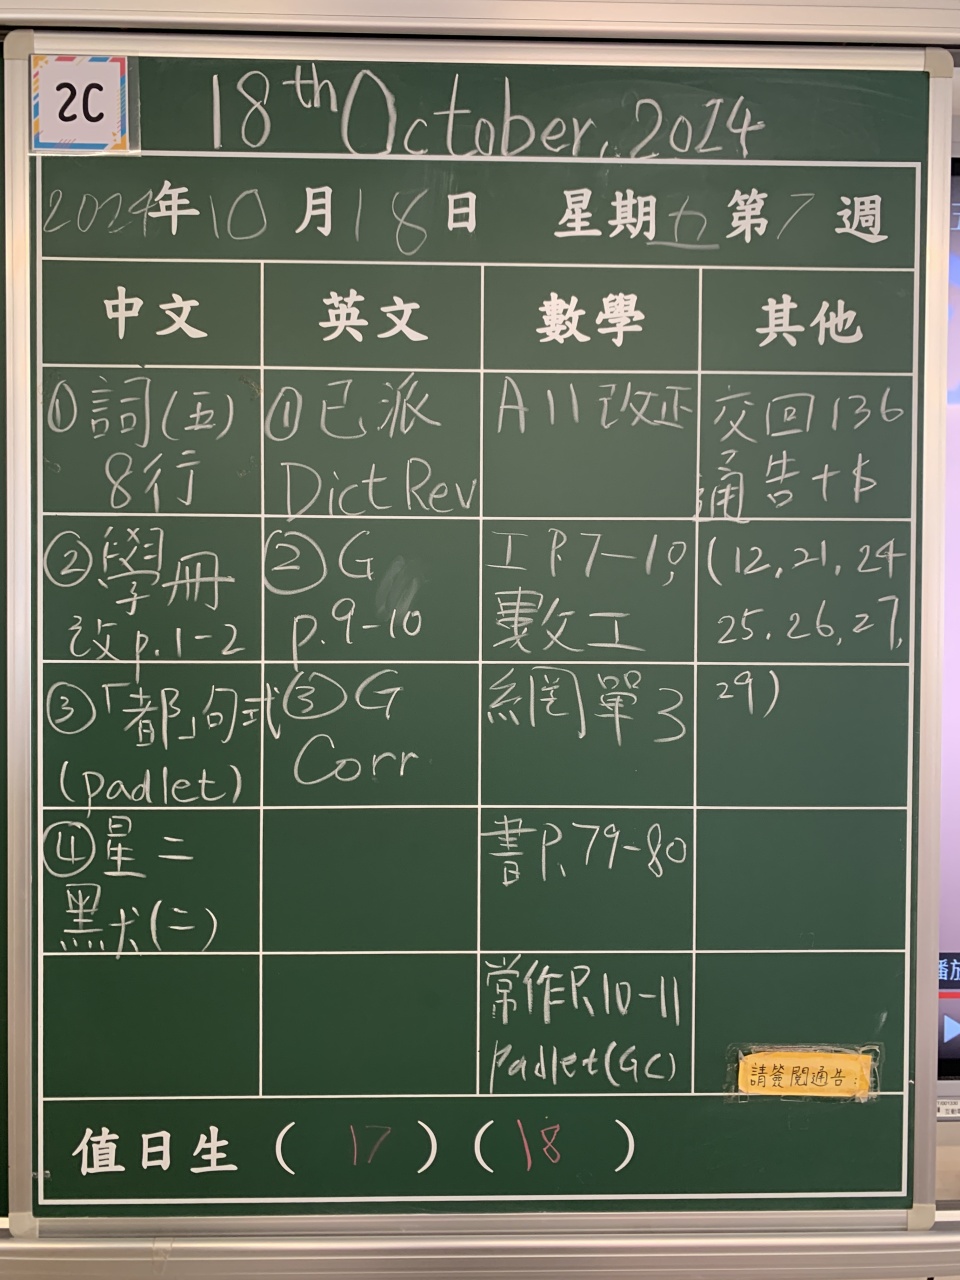 2C
18th October, 2024
2024年10月18日 星期五第7週
中文 英文 數學 其他
①詞(五)
8行
②學冊
改p.1-2
③「都」句式
(padlet)
④星二
黑犬(二)
①已派
Dict Rev
②G
p.9-10
③G
Corr
A11改正
工P.7-10,
數文工
網單3
書P.79-80
常作P.10-11
Padlet(GC)
交回136
通告+$
(12,21,24
25.26,27,
29)
請簽閱通告:
值日生(17)(18)
播放